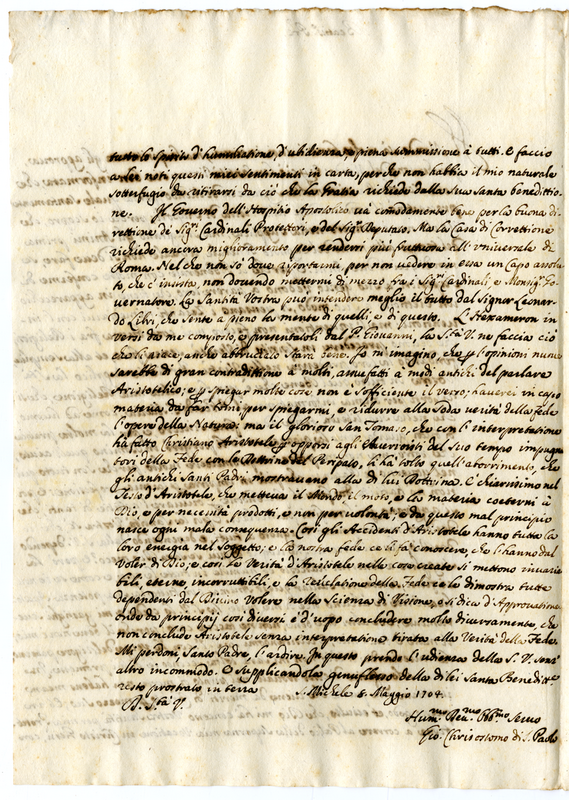 tutto lo spirito d'humiliatione, d'ubidienza, e piena summissione à tutti. E faccio
a lei noti questi miei sentimenti in carta, perche non habbia il mio naturale
sotterfugio da ritirarsi da ciò che la gratia richiede dalla Sua santa benedittio-
ne. Il Governo dell'Hospitio Apostolico và comodamente bene per la buona di-
rettione de Sigri Cardinali Protettori, e del Sigr Deputato. Ma la Casa di Correttione
richiede ancora miglioramento per rendersi più fruttuosa all'universale di
Roma. Nel che non sò dove riportarmi, per non vedere in essa un Capo assolu-
to, che c'insista, non dovendo mettermi di mezzo fra i Sigri Cardinali, e Monsigr Go-
vernatore. La Santità Vostra può intendere meglio il tutto dal Signor Leonar-
do Libri, che sente a pieno la mente di quelli, e di questo. L'Hexameron in
versi da me composto, e presentatoli dal P. Giovanni, la Stà V. ne faccia ciò
che li piace, anche abbruciarlo starà bene. Io mi imagino, che l'opinioni nuove
sarebbe di gran contraditione a molti, assuefatti a modi antichi del parlare
Aristotelico, e spiegar molte cose non è sofficiente il verso; hauerei in capo
materia da far tomi per spiegarmi, e ridurre alla soda verità della fede
l'opere della Natura: ma il glorioso San Tomaso, che con l'interpretatione
ha fatto Christiano Aristotele opporsi agli Averroisti del suo tempo impugna-
tori della Fede con la Dottrina del Peripato, li hà tolto quell'aborrimento, che
gli antichi Santi Padri mostraveno alla di lui Dottrina. E chiarissimo nel
Testo d'Aristotele, che metteva il Mondo, il moto, e la materia coeterni à
Dio, e per necessità prodotti, e non per volontà; e da questo mal principio
nasce ogni mala consequenza. Così gli Accidenti d'Aristotele hanno tutta la
loro energia nel Soggetto; e la nostra fede ce li fà conoscere, che l'hanno dal
voler di Dio, e così le Verità d'Aristotele nelle cose create si mettono invaria-
bili, eterne, incorruttibili, e la Revelatione della Fede ce le dimostra tutte
dependenti dal Divino Volere nella Scienza di Visione, o si dica d'Approvatione
onde da principij così diversi è d'uopo concludere molto diversamente, che
non conclude Aristotele senza interpretatione tirata alla Verità della Fede.
Mi perdoni Santo Padre l'ardire. In questo prendo l'udienza della S. V. senz'
altro incommodo. E supplicandola genuflesso della di lei Santa Benedittne
resto prostrato in terra S. Michele 8. Maggio 1704.
D. Stà V.
Hummo Devmo Obbmo Servo
Gio. Chrisostomo di S. Paolo